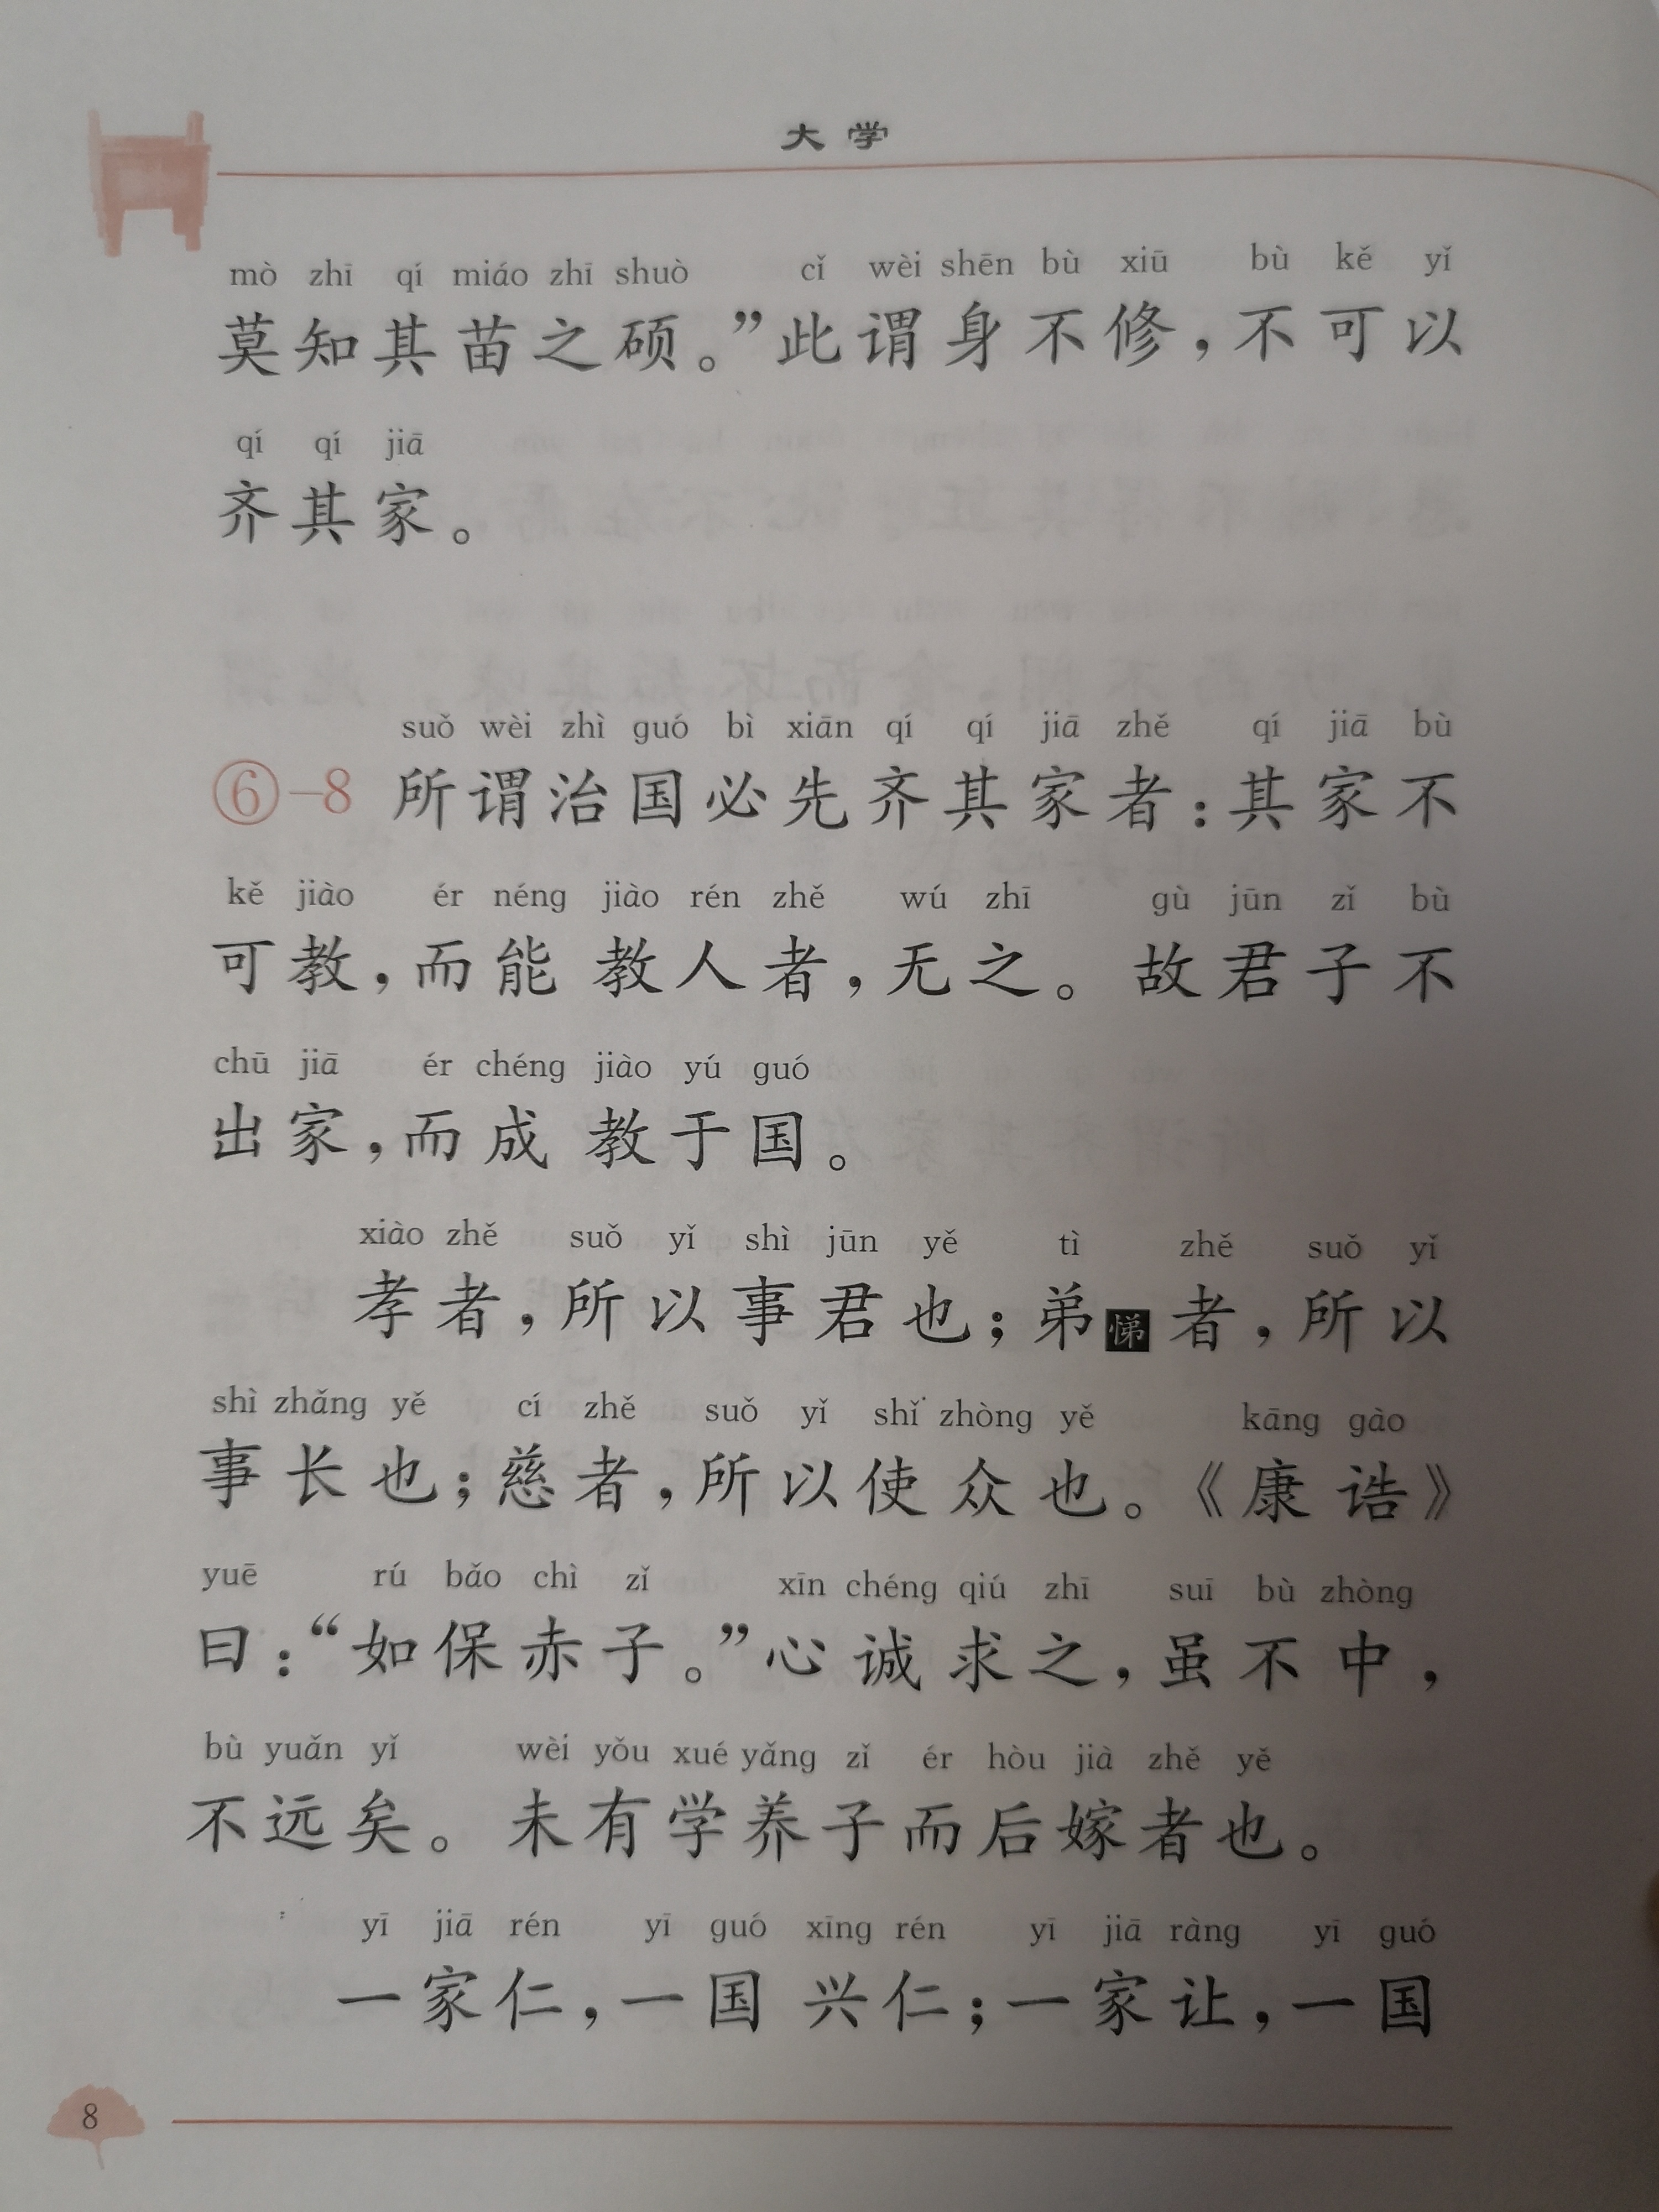 大学
mò zhī qí miáo zhī shuò cǐ wèi shēn bù xiū bù kě yǐ
莫知其苗之硕。”此谓身不修，不可以
qí qí jiā
齐其家。
suǒ wèi zhì guó bì xiān qí qí jiā zhě qí jiā bù
⑥-8 所谓治国必先齐其家者：其家不
kě jiào ér néng jiào rén zhě wú zhī gù jūn zǐ bù
可教，而能教人者，无之。故君子不
chū jiā ér chéng jiào yú guó
出家，而成教于国。
xiào zhě suǒ yǐ shì jūn yě tì zhě suǒ yǐ
孝者，所以事君也；弟悌者，所以
shì zhǎng yě cí zhě suǒ yǐ shǐ zhòng yě kāng gào
事长也；慈者，所以使众也。《康诰》
yuē rú bǎo chì zǐ xīn chéng qiú zhī suī bù zhòng
曰：“如保赤子。”心诚求之，虽不中，
bù yuǎn yǐ wèi yǒu xué yǎng zǐ ér hòu jià zhě yě
不远矣。未有学养子而后嫁者也。
yī jiā rén yī guó xīng rén yī jiā ràng yī guó
一家仁，一国兴仁；一家让，一国
8